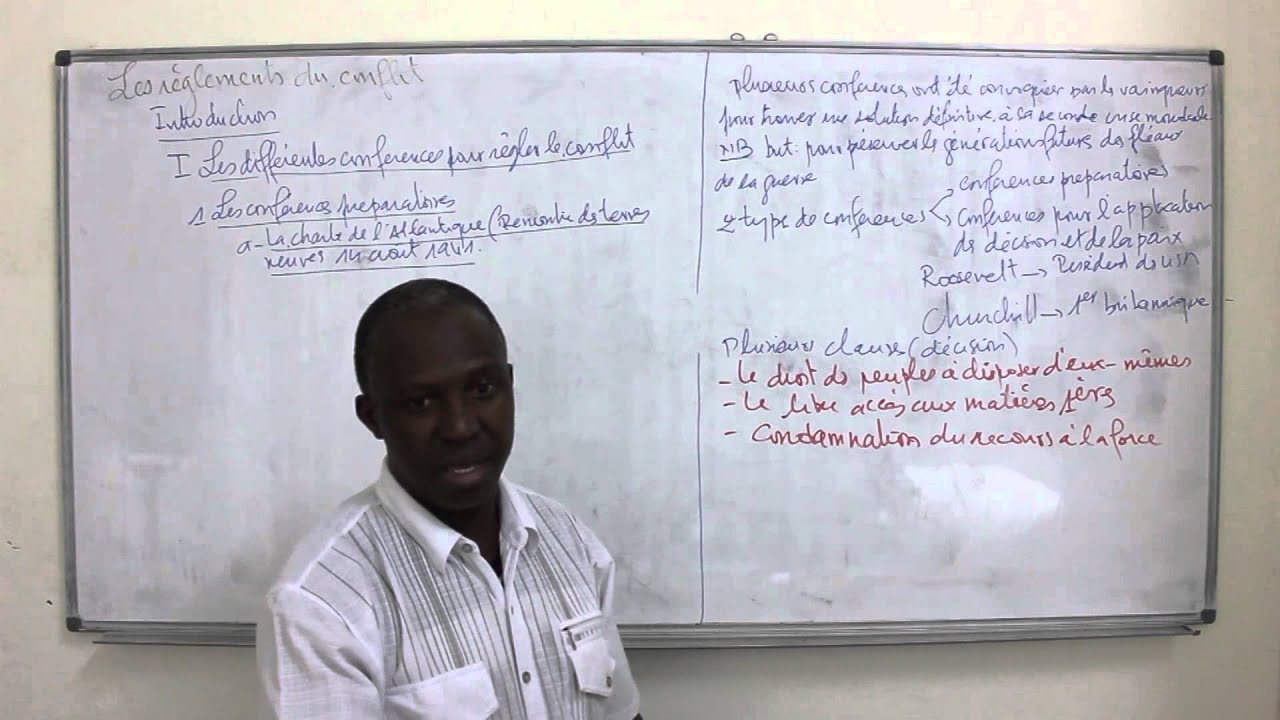 Les règlements du conflit
Introduction
I Les différentes conférences pour règler le conflit
1 Les conférences preparatoires
a- La charte de l'Atlantique (Rencontre des terres
neuves 14 aout 1941.
Plusieurs conférences ont été convoquées par les vainqueurs
pour trouver une solution définitive à la seconde crise mondiale
NB but: pour préserver les générations futures des fléaux
de la guerre
2 type de conférences
conférences preparatoires
Conférences pour l'application
de décision et de la paix
Roosevelt → Président des USA
Churchill → 1er britannique
Plusieurs clauses (décision)
- Le droit des peuples à disposer d'eux-mêmes
- Le libre accès aux matières 1ères
- Condamnation du recours à la force